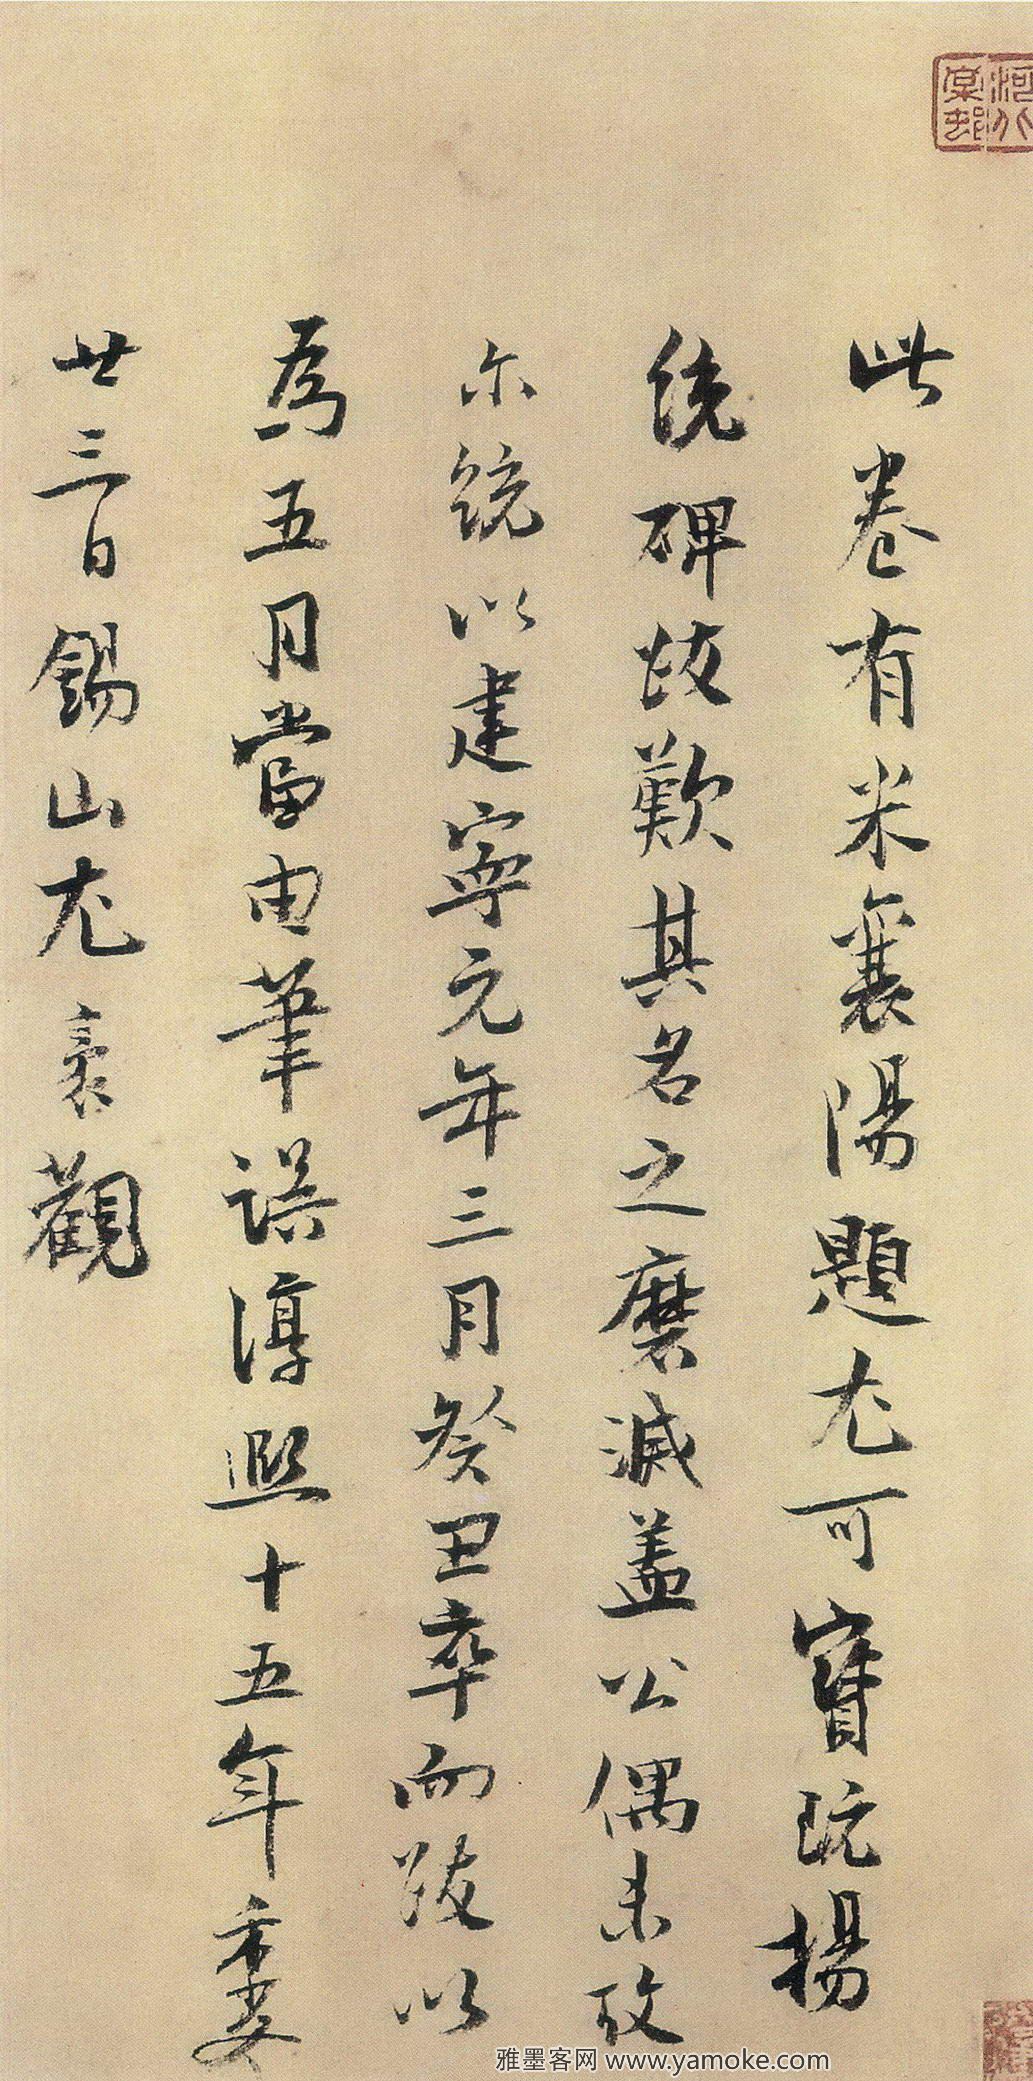 此卷有米襄陽題尤可寶玩揚
統碑跋歎其名之磨滅盖公偶未攷
尓統以建寧元年三月癸丑卒而跋以
爲五月當由筆誤淳熙十五年季夏
廿三日錫山尤袤觀
河北
棠邨
雅墨客网 www.yamoke.com